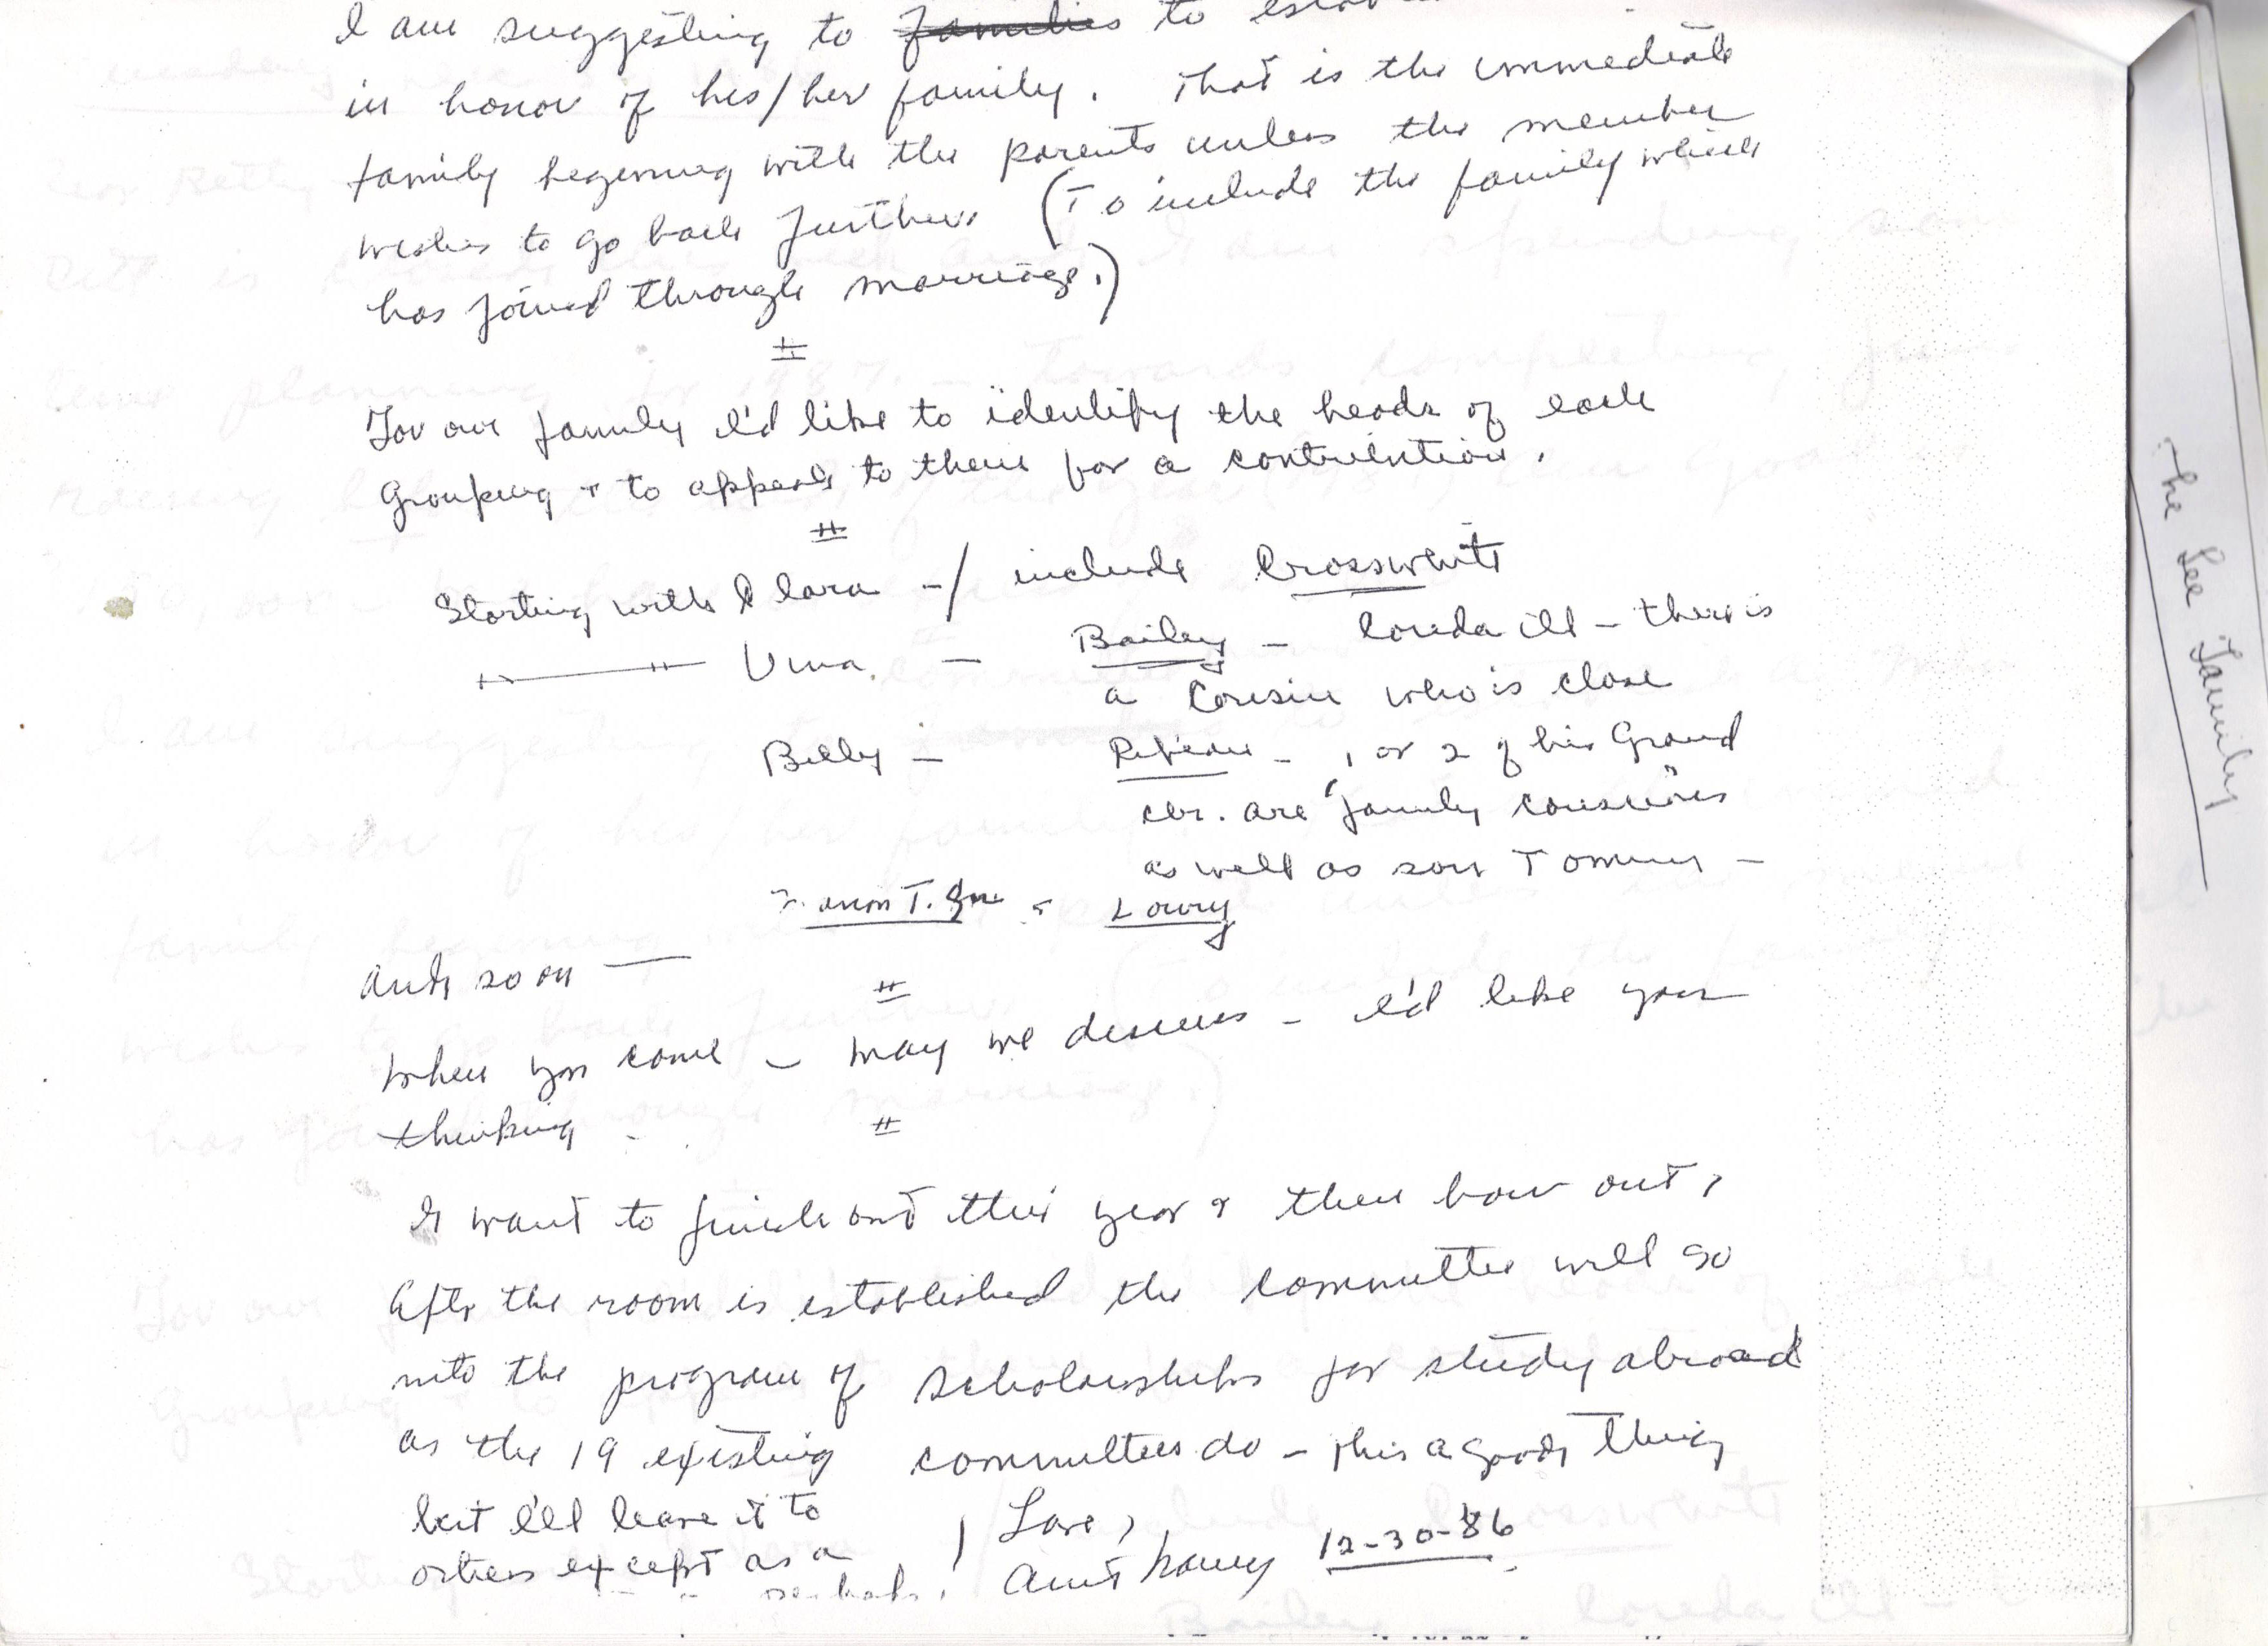 I am suggesting to families to
in honor of his/her family. That is the immediate
family begining with the parents unless the member
wishes to go back further. (To include the family which
has joined through marriage.)
#
For our family I'd like to identify the heads of each
Grouping + to appeal to them for a contribution.
#
Starting with Clara - / include Crosswhite
Vina. - Bailey - Loreda ill - there is
a Cousin who is close
Billy - - 1 or 2 of his Grand
chr. are "family conscious"
as well as son Tommy -
T. Lowry
and so on —
#
When you come - may we discuss - I'd like your
thinking -
#
I want to finish out this year & then bow out,
After the room is established the committee will go
into the program of Scholarships for study abroad
as the 19 existing committees do - this a good thing
but I'll leave it to
others except as a
perhaps.
Love,
Aunt 12-30-86
The Lee Family